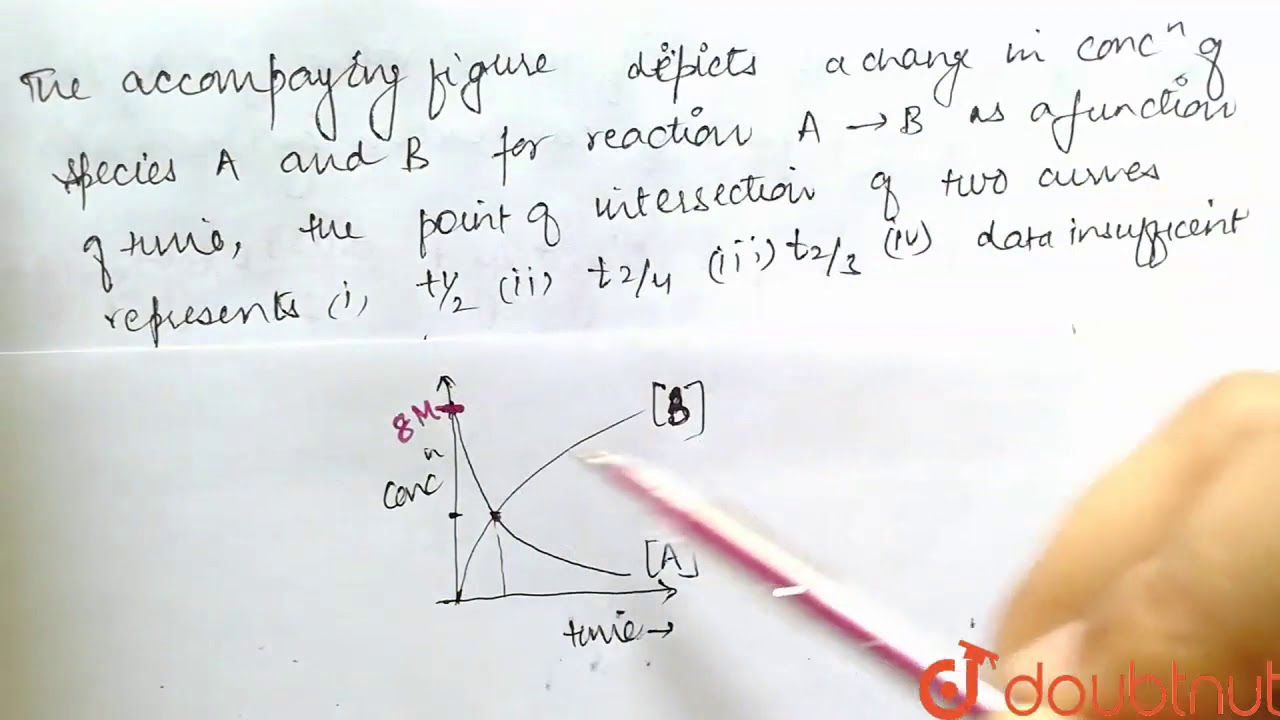 The accompaying figure depicts a change in concⁿ of
species A and B for reaction A → B as a function
of time, the point of intersection of two curves
represents (i) t1/2 (ii) t2/4 (iii) t2/3 (iv) data insufficent
8M
concⁿ
[B]
[A]
time →
doubtnut